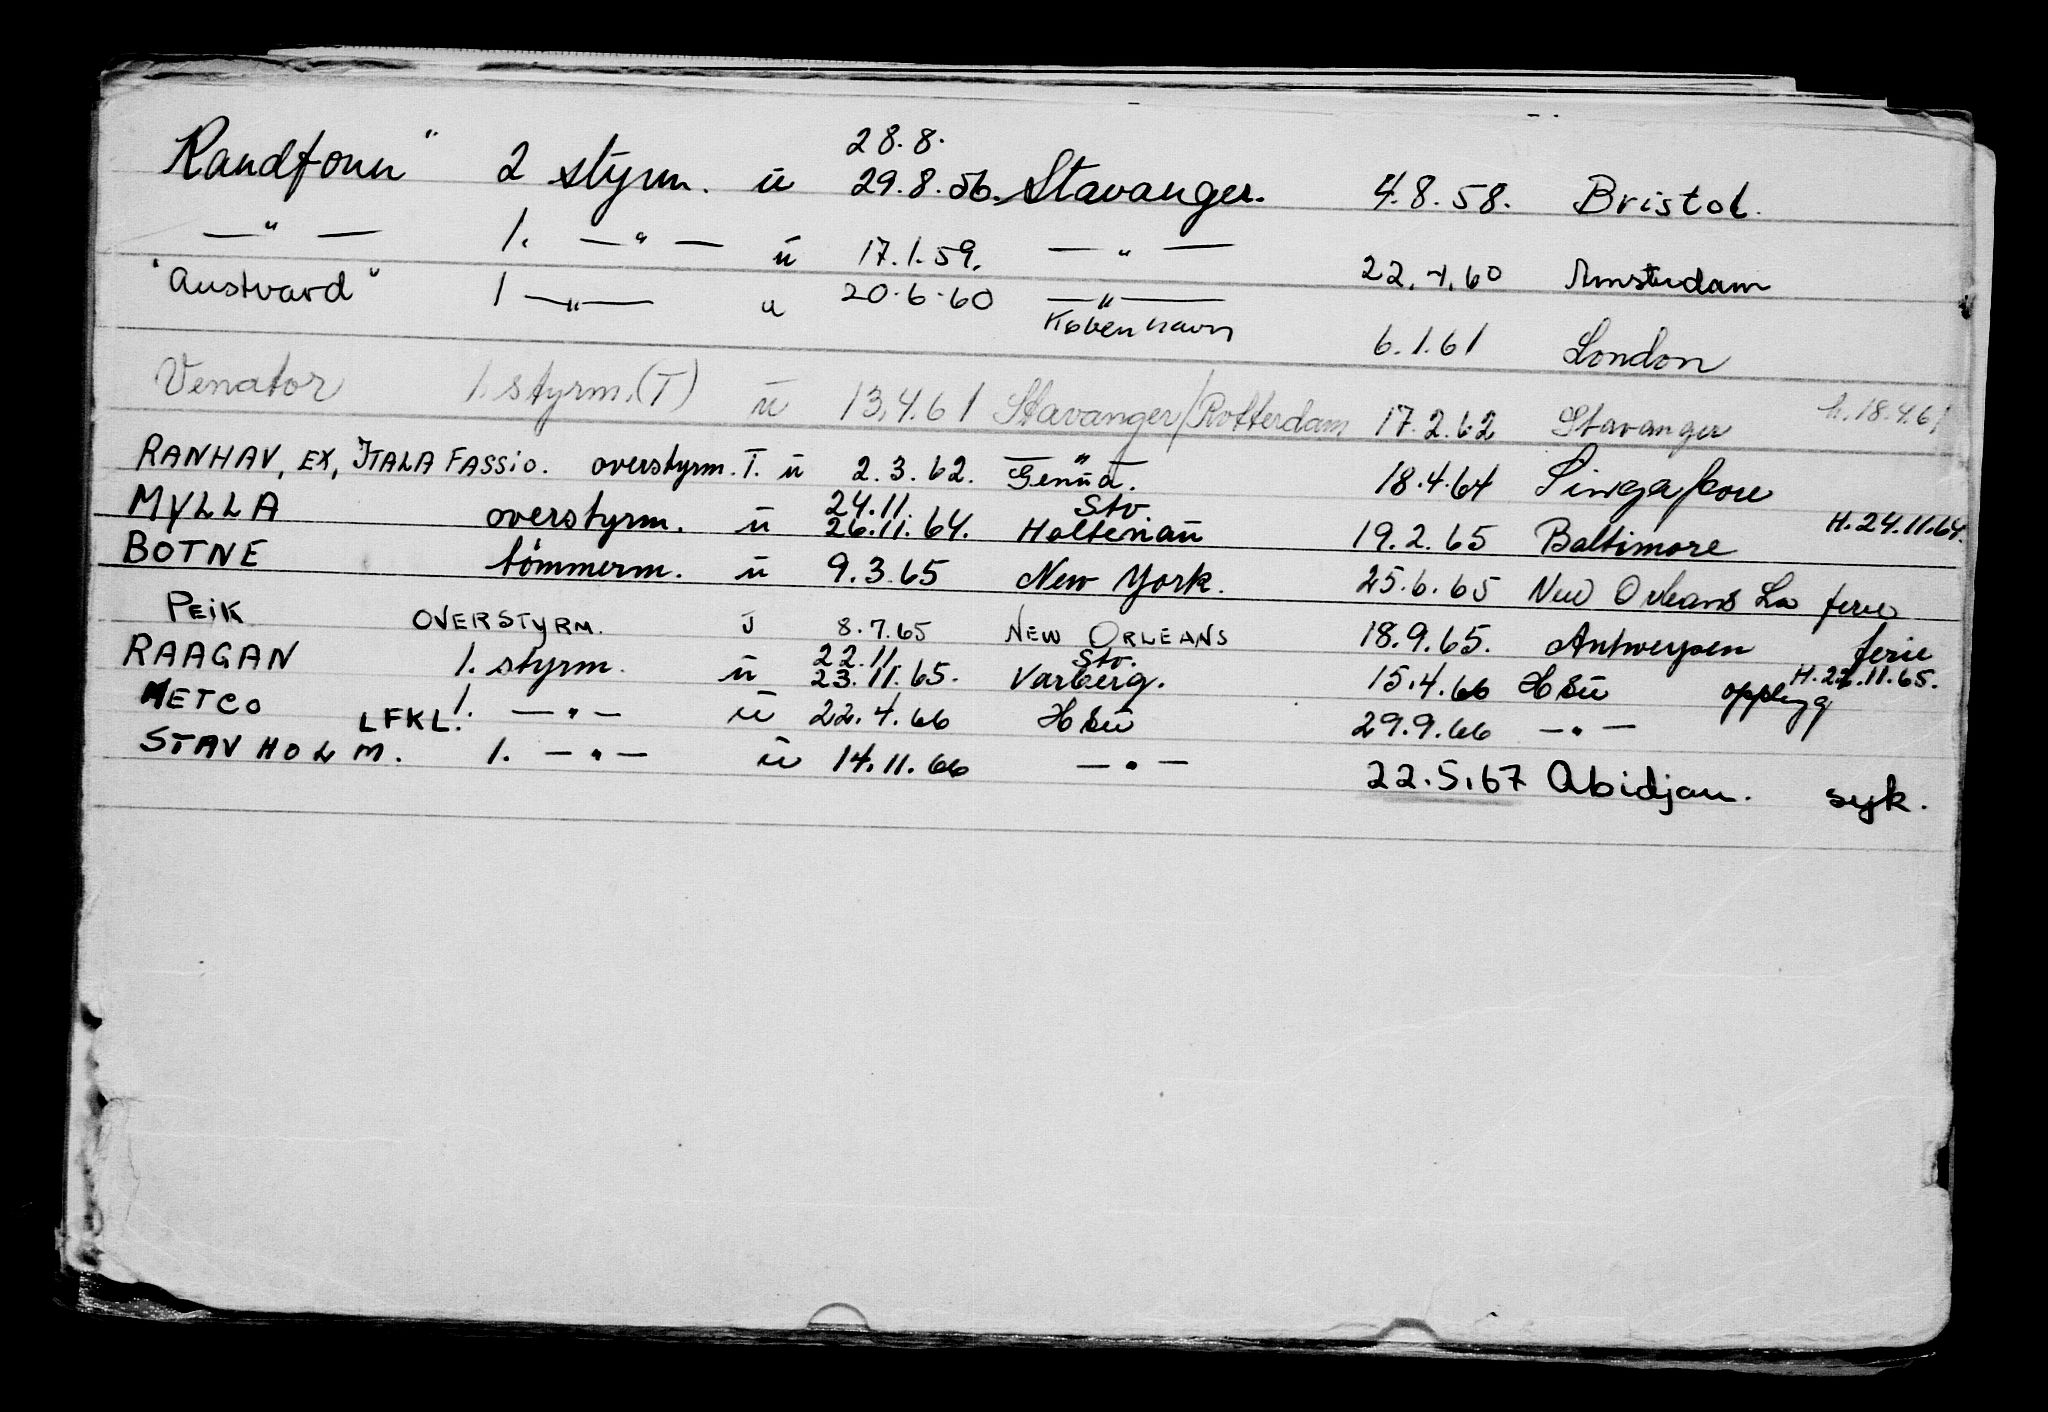 28.8.
Randfonn" 2 styrm. u 29.8.56. Stavanger. 4.8.58. Bristol.
—"— 1. —"— u 17.1.59. —"— 22.4.60 Amsterdam
"Austvard" 1 —"— u 20.6.60 —"— København 6.1.61 London
Venator 1. styrm. (T) u 13.4.61 Stavanger/Rotterdam 17.2.62 Stavanger h. 18.4.61
RANHAV, EX, ITALA FASSIO. overstyrm. T. u 2.3.62. —"— Genua. 18.4.64 Singapore
24.11. Stv.
MYLLA overstyrm. u 26.11.64. Holtenau 19.2.65 Baltimore H. 24.11.64.
BOTNE tömmerm. u 9.3.65 New York. 25.6.65 New Orleans La ferie
PEIK OVERSTYRM. J 8.7.65 NEW ORLEANS 18.9.65. Antwerpen ferie
22.11. Stv.
RAAGAN 1. styrm. u 23.11.65. Varberg. 15.4.66 opplegg H. 22.11.65.
METCO LFKL. 1. —"— u 22.4.66 29.9.66 —"—
STAVHOLM. 1. —"— u 14.11.66 —"— 22.5.67 Abidjan. syk.